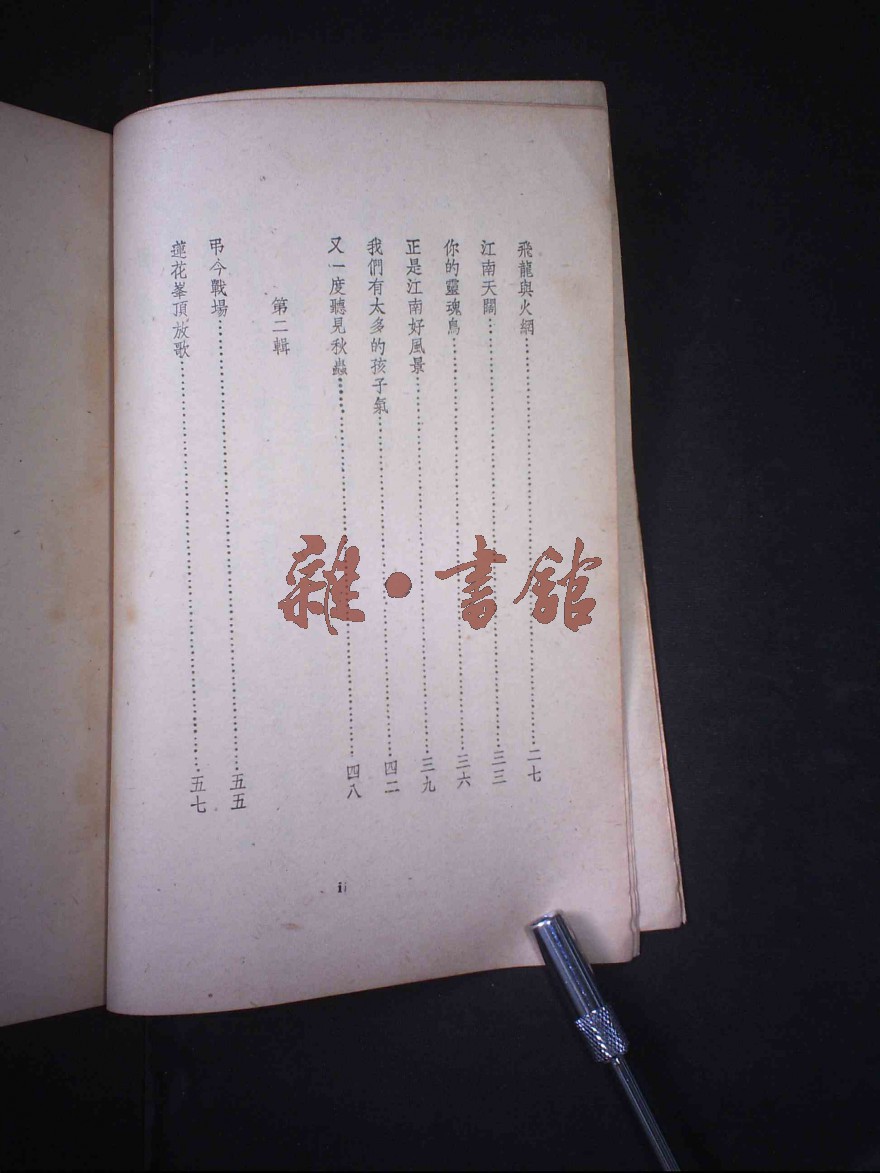 飛龍與火網……二七
江南天闊……三三
你的靈魂鳥……三六
正是江南好風景……三九
我們有太多的孩子氣……四二
又一度聽見秋蟲……四八
第二輯
弔今戰場……五五
蓮花峯頂放歌……五七
ii
雜·書館